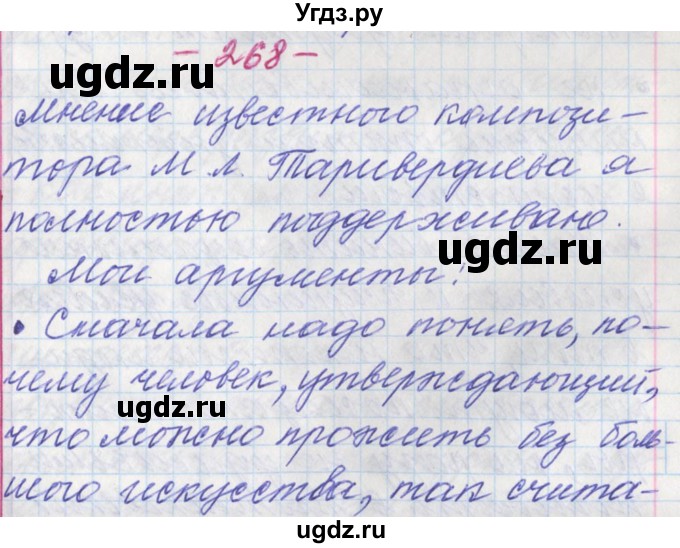 Угдз.ру
- 268 -
ugdz.ru
Мнение известного компози-
тора М. Л. Таривердиева я
полностью поддерживаю.
ugdz.ru
Мои аргументы:
• Сначала надо понять, по-
чему человек, утверждающий,
ugdz.ru
что можно прожить без боль-
ugdz.ru
шого искусства, так счита-
Угдз.ру
ugdz.ru